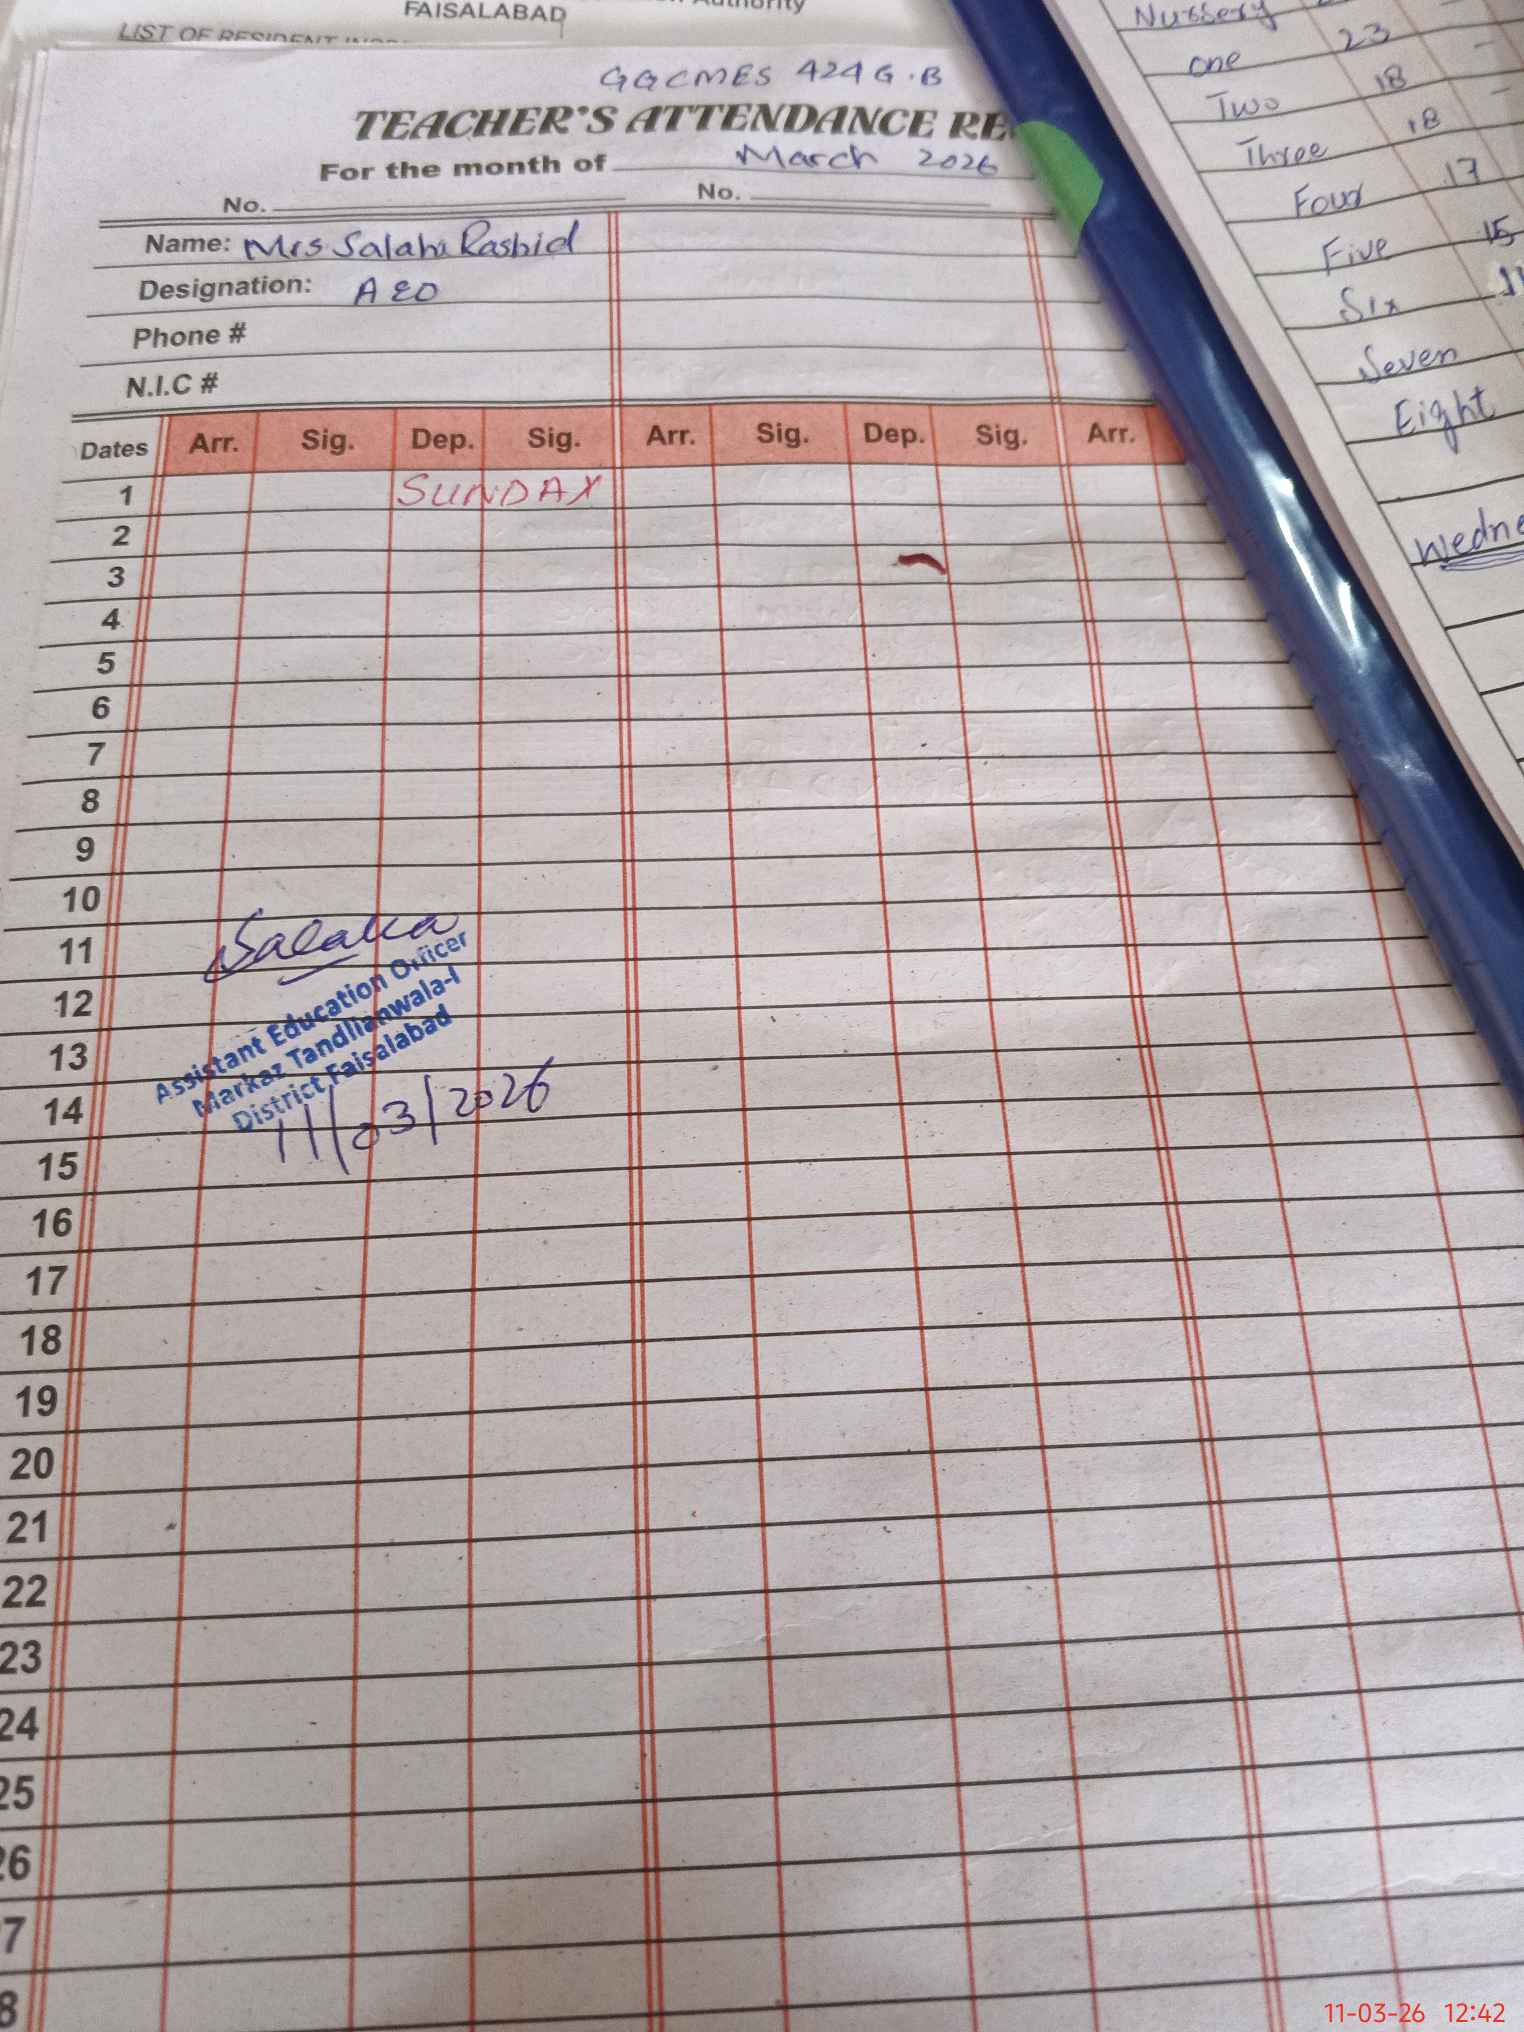 FAISALABAD
LIST OF RESIDENT
GGCMES 424 G.B
TEACHER'S ATTENDANCE RE
For the month of March 2026
No. No.
Name: Mrs Salaha Rashid
Designation: AEO
Phone #
N.I.C #
Dates Arr. Sig. Dep. Sig. Arr. Sig. Dep. Sig. Arr.
1 SUNDAY
2
3
4
5
6
7
8
9
10
11 Salaha
Assistant Education Officer
12
Markaz Tandlianwala-I
13
District Faisalabad
14 11/03/2026
15
16
17
18
19
20
21
22
23
24
25
26
7
8
Nursery
one 23 -
Two 18 -
Three 18
Four 17
Five 15
Six
Seven
Eight
Wedne
11-03-26 12:42